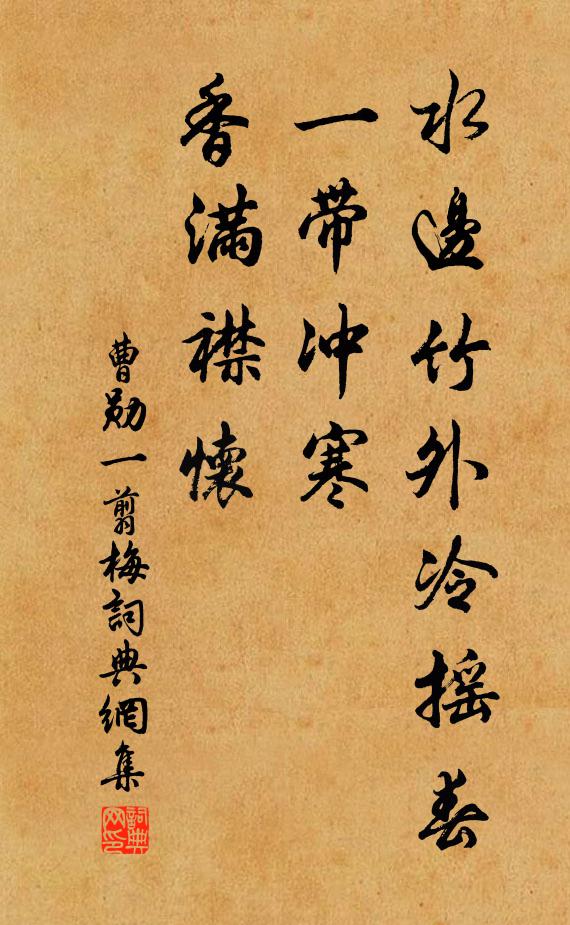 水邊竹外冷摇春
一帶冲寒
香滿襟懷
曹勛一剪梅詞典網集
詞典
网印